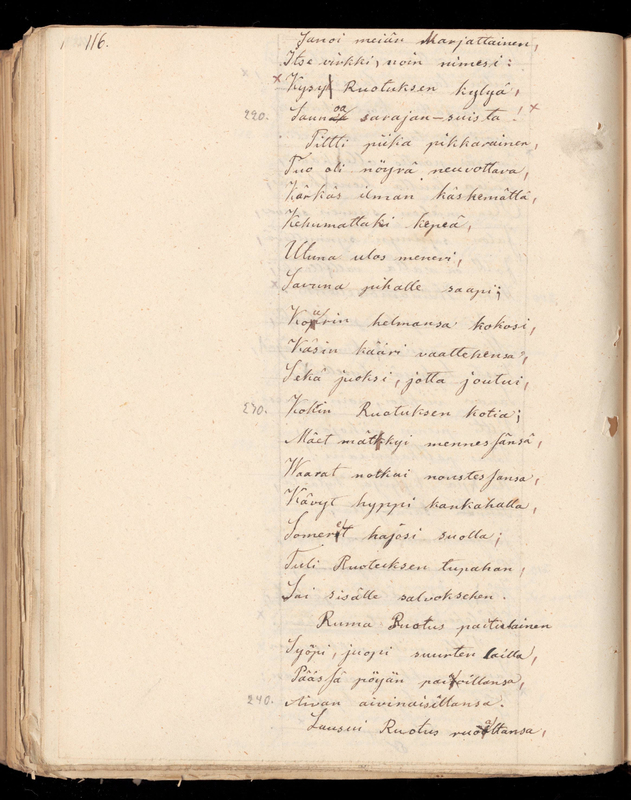 116.
Sanoi meiän Marjattainen,
Itse virkki, noin nimesi:
Kysy Ruotuksen kylyä,
220. Saunoa sarajan-suista!
Piltti piika pikkarainen,
Tuo oli nöyrä neuvottava,
Kärkäs ilman käskemättä,
Kehumattaki kepeä,
Utuna ulos menevi,
Savuna pihalle saapi;
Käsin helmansa kokosi,
Käsin kääri vaattehensa,
Sekä juoksi, jotta joutui,
230. Kohin Ruotuksen kotia;
Mäet mätkyi mennessänsä,
Waarat notkui noustessansa,
Kävyt hyppi kankahalla,
Someret hajosi suolla;
Tuli Ruotuksen tupahan,
Sai sisälle salvoksehen.
Ruma Ruotus paitulainen
Syöpi, juopi suurten lailla,
Päässä pöyän paioillansa,
240. Aivan aivinaisillansa.
Lausui Ruotus ruoaltansa,